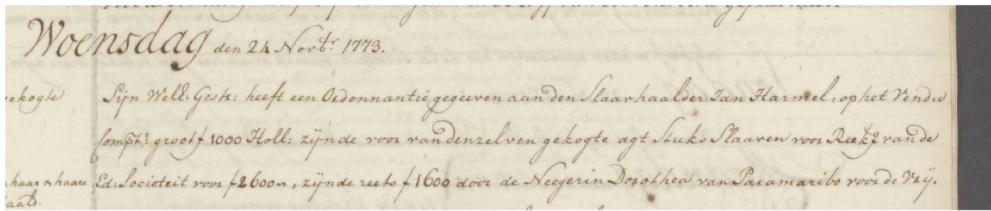 Woensdag den 24 Novbr. 1773.
Sijn Well: Gestr: heeft een Ordonnantie gegeeven aan den Slaavhaalder Jan Harmel, op het Vendu
Compt: groot f 1000 Holl: zijnde voor van denzelven gekogte agt Stuks Slaaven voor Reek: van de
Ed: Societeit voor f 2600 –, zijnde reets f 1600 door de Neegerin Dorothea van Paramaribo voor de Vrij.